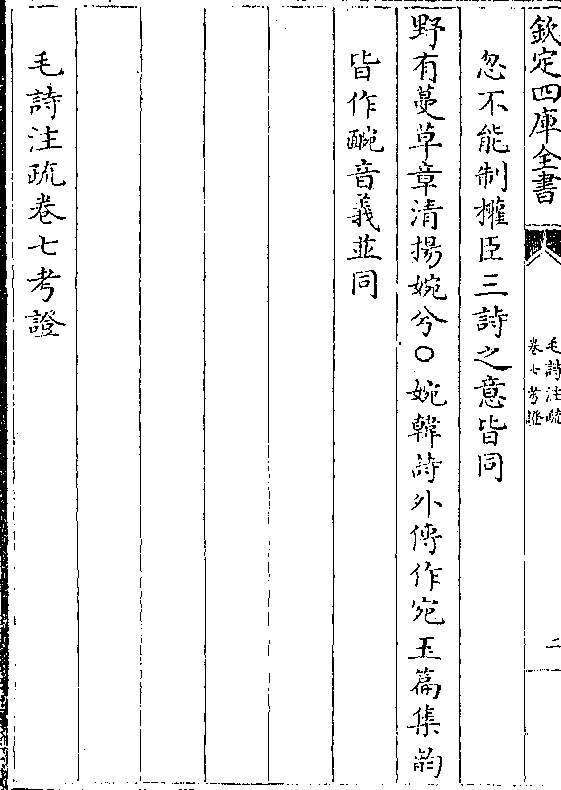 欽定四庫全書
毛詩注疏
卷七考證
二
忽不能制權臣三詩之意皆同
野有蔓草章清揚婉兮○婉韓詩外傳作宛玉篇集韵
皆作䩊音義並同
毛詩注疏卷七考證